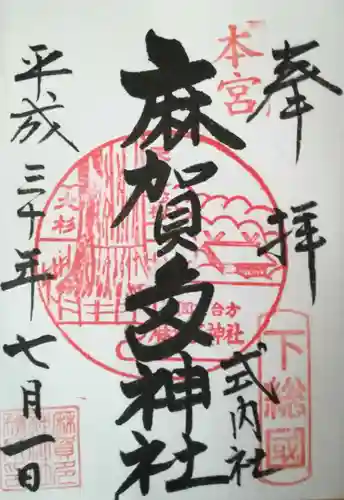 奉拝
本宮
式内社
下総國
麻賀多神社
大杉
台方
神社
平成三十年七月一日